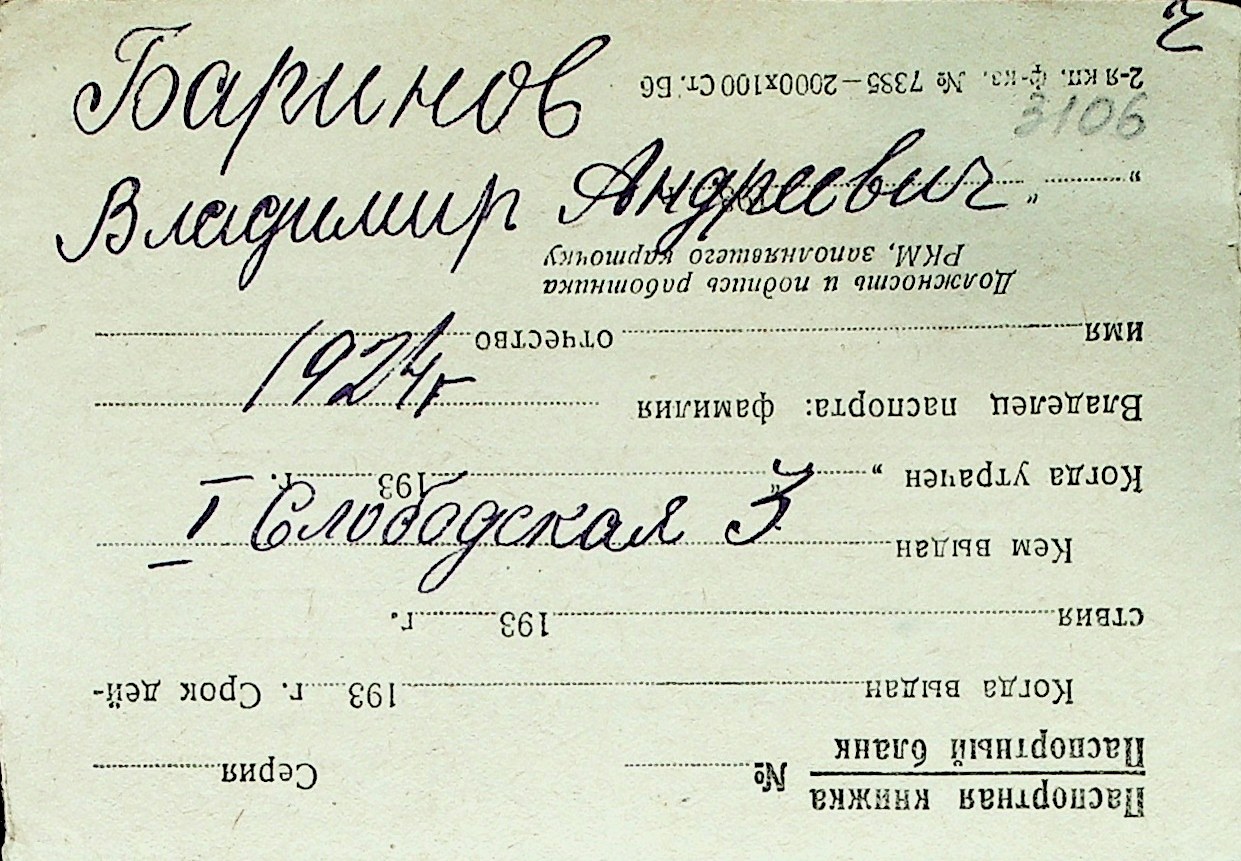 Баринов
Владимир Андреевич
1924 г
I Слободская 3
3106
Паспортная книжка
Паспортный бланк № Серия
Когда выдан 193 г. Срок дей-
ствия 193 г.
Кем выдан
Когда утрачен „ “ 193 г.
Владелец паспорта: фамилия
имя отчество
Должность и подпись работника
РКМ, заполнявшего карточку
„ “
2-я кп. ф-ка. № 7385—2000х100 Ст. Б6